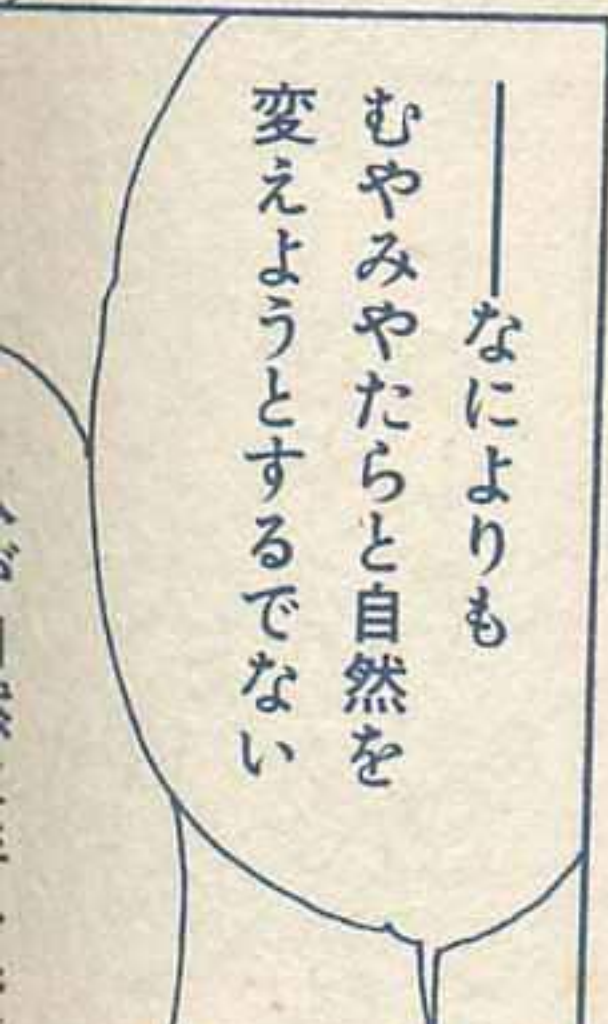 ――なによりも
むやみやたらと自然を
変えようとするでない